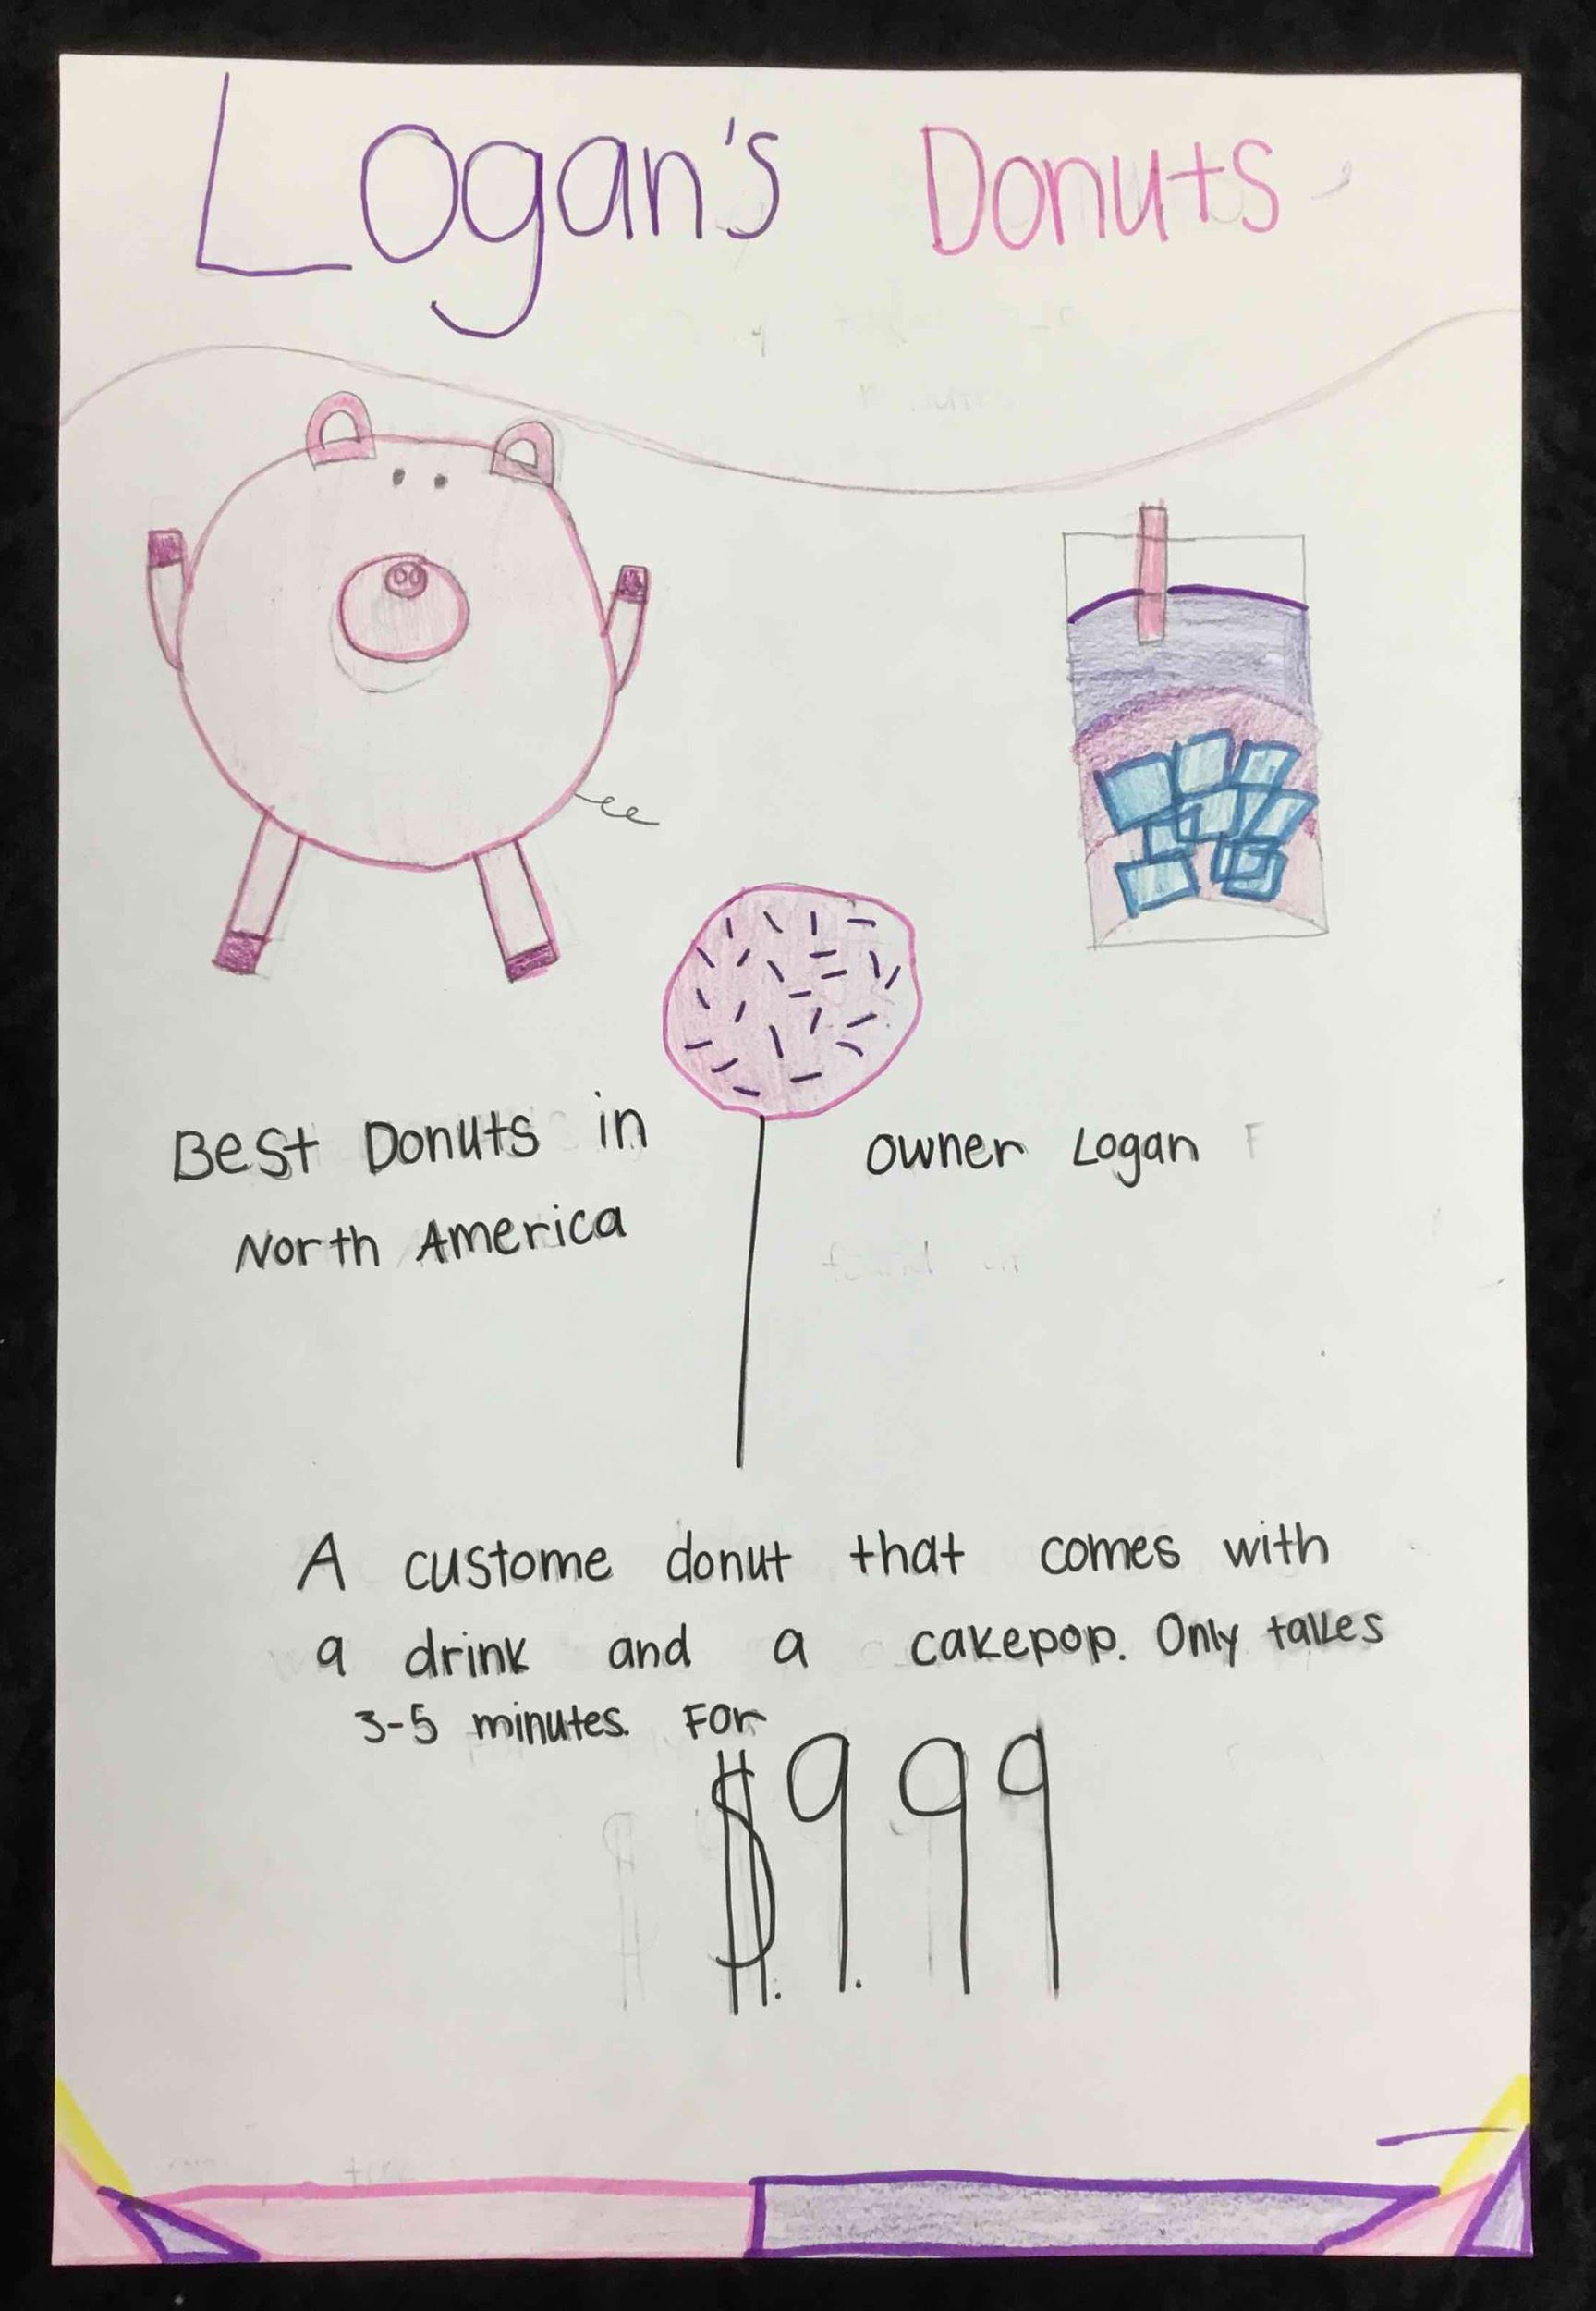 Logan's Donuts
Best Donuts in
North America
owner Logan F
A custome donut that comes with
a drink and a cakepop. Only takes
3-5 minutes. For
$9.99